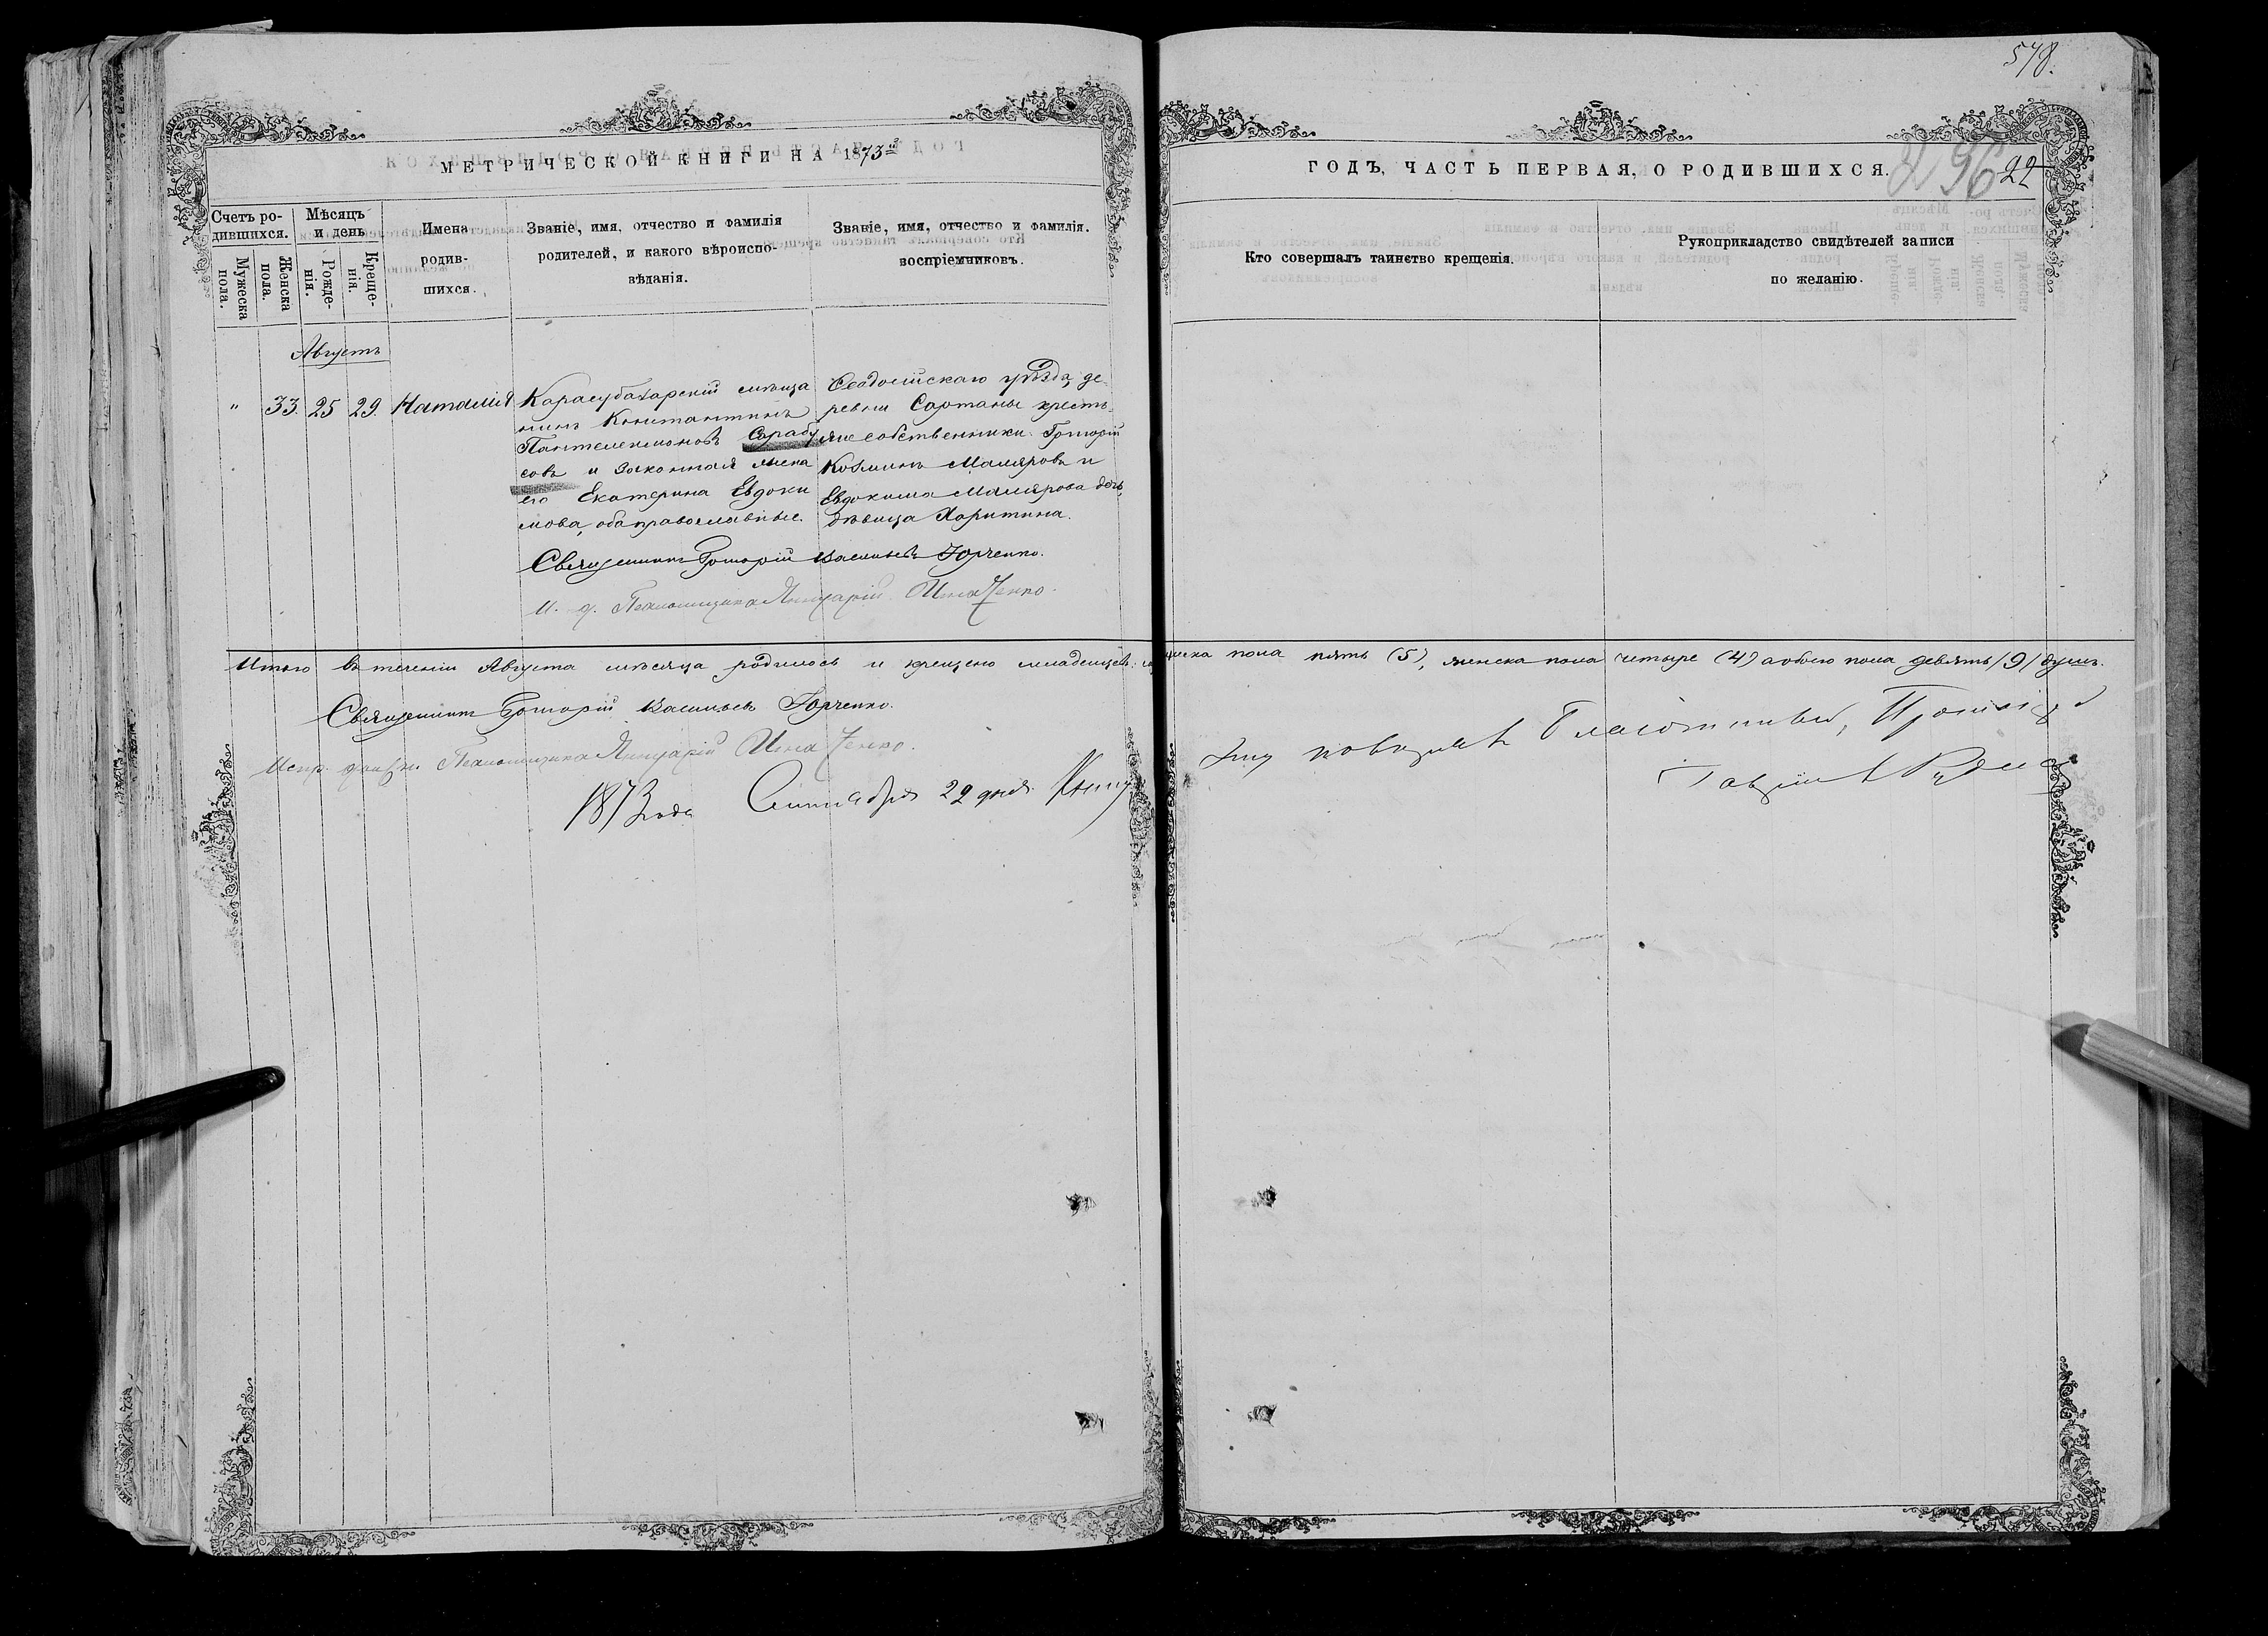 578.
МЕТРИЧЕСКОЙ КНИГИ НА 1873й
ГОДЪ, ЧАСТЬ ПЕРВАЯ, О РОДИВШИХСЯ.
96 22
Счетъ ро-
дившихся.
Мужеска
пола.
Женска
пола.
Мѣсяцъ
и день
Рожде-
нія.
Креще-
нія.
Имена
родив-
шихся.
Званіе, имя, отчество и фамилія
родителей, и какого вѣроиспо-
вѣданія.
Званіе, имя, отчество и фамилія.
воспріемниковъ.
Кто совершалъ таинство крещенія.
Рукоприкладство свидѣтелей записи
по желанію.
Августъ
" 33. 25 29. Наталія
Карасубазарскій мѣща
нинъ Константинъ
Пантелеимоновъ Сарабу
совъ и законная жена
его Екатерина Евдоки
мова, оба православные.
Ѳеодосійскаго уѣзда, де-
ревни Сартаны кресть-
яне собственники: Григорій
Козминъ Маляровъ и
Евдокима Малярова дочь,
дѣвица Харитина.
Священникъ Григорій Васильевъ Юрченко.
И. д. Псаломщика Януарій
Итого въ теченіи Августа мѣсяца родилось и крещено младенцевъ: мужеска пола пять (5), женска пола четыре (4) а обоего пола девять (9) душъ.
Священникъ Григорій Васильевъ Юрченко.
Испр. должн. Псаломщика Януарій
1873 года Сентября 22 дня